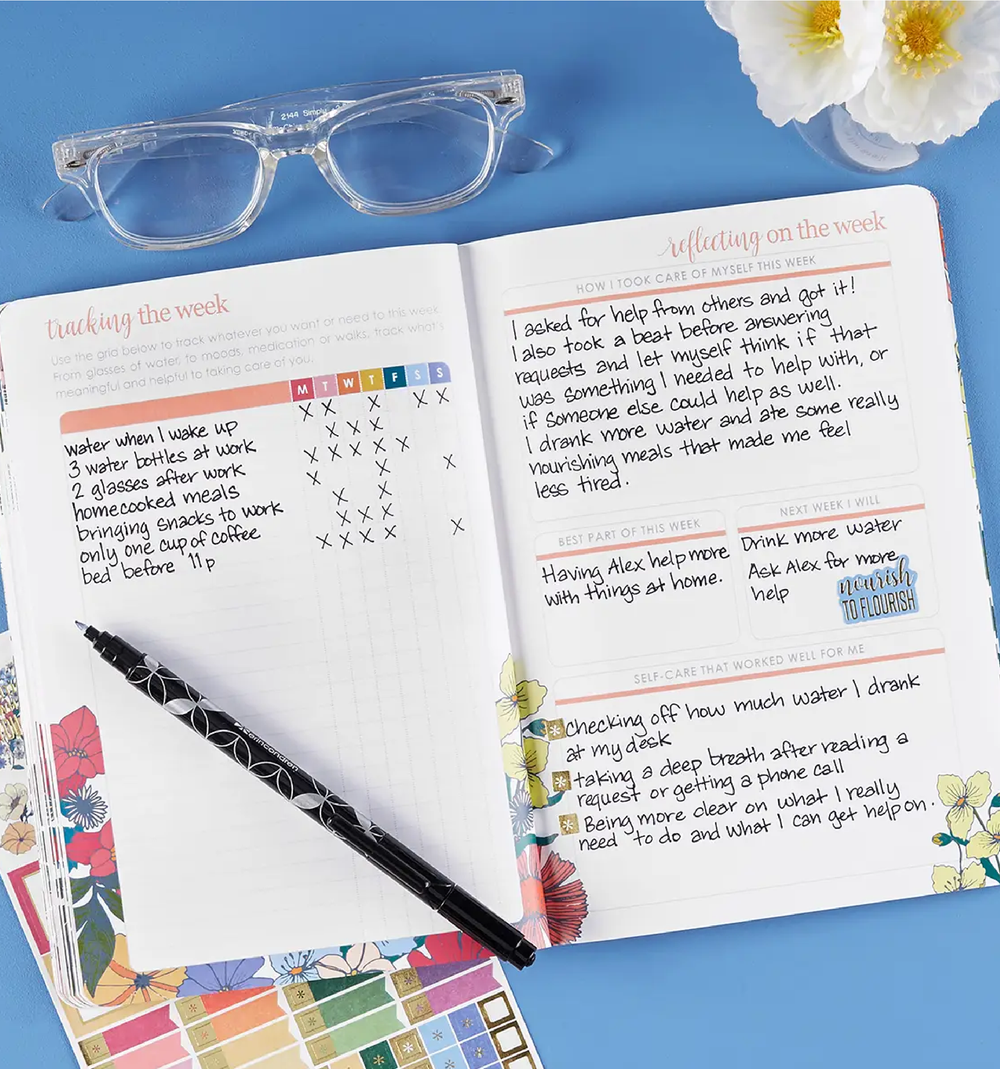 2144 Simply
tracking the week
Use the grid below to track whatever you want or need to this week.
From glasses of water, to moods, medication or walks, track what's
meaningful and helpful to taking care of you.
M T W T F S S
water when I wake up X X X X X
3 water bottles at work X X X
2 glasses after work X X X X X
homecooked meals X X X
bringing snacks to work X X
only one cup of coffee X X X
bed before 11p X X X X X
erincondren
reflecting on the week
HOW I TOOK CARE OF MYSELF THIS WEEK
I asked for help from others and got it!
I also took a beat before answering
requests and let myself think if that
was something I needed to help with, or
if someone else could help as well.
I drank more water and ate some really
nourishing meals that made me feel
less tired.
BEST PART OF THIS WEEK
Having Alex help more
with things at home.
NEXT WEEK I WILL
Drink more water
Ask Alex for more
help
nourish
TO FLOURISH
SELF-CARE THAT WORKED WELL FOR ME
Checking off how much water I drank
at my desk
taking a deep breath after reading a
request or getting a phone call
Being more clear on what I really
need to do and what I can get help on.